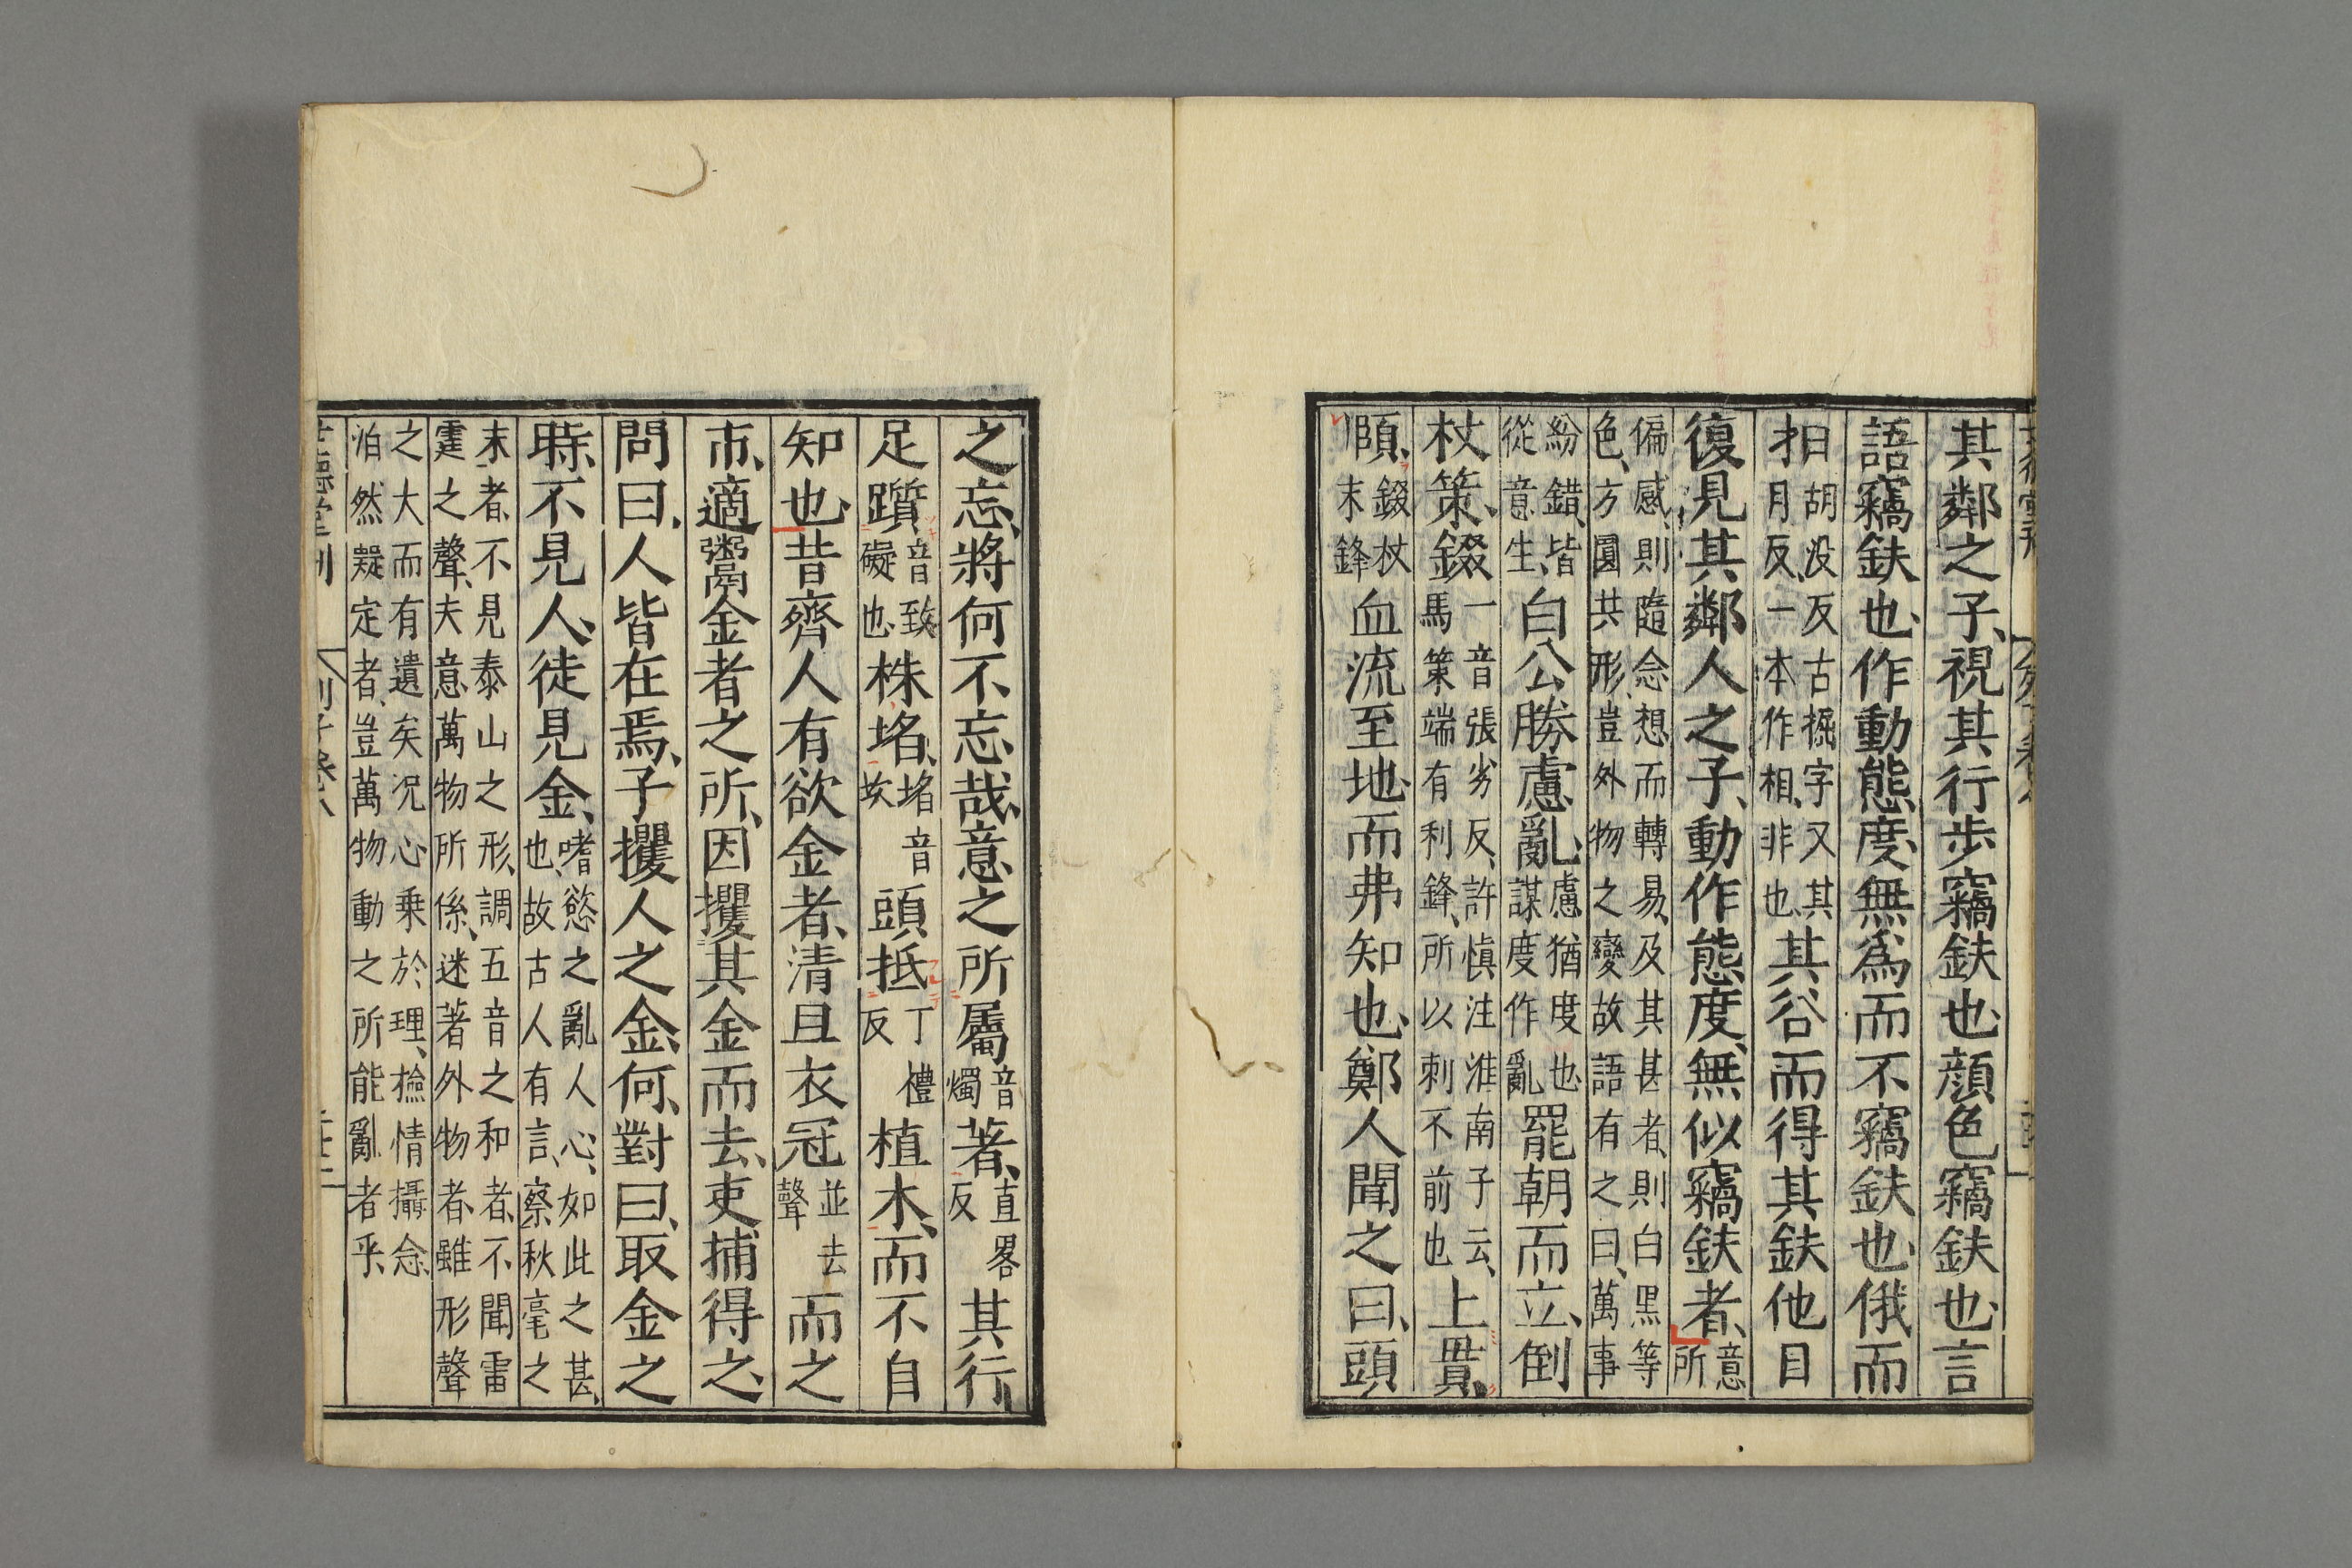 其鄰之子視其行步竊鈇也顏色竊鈇也言
語竊鈇也作動態度無爲而不竊鈇也俄而
抇胡没反古掘字又其
月反一本作相非也其谷而得其鈇他日
復見其鄰人之子動作態度無似竊鈇者意所
偏惑則隨念想而轉易及其甚者則白黑等
色方圓共形豈外物之變故語有之曰萬事
紛錯皆從意生白公勝慮亂慮猶度也謀度作亂罷朝而立倒
杖策錣一音張劣反許愼注淮南子云馬策端有利鋒所以刺不前也上貫
頤錣杖末鋒血流至地而弗知也鄭人聞之曰頭
之忘將何不忘哉意之所屬音燭著直畧反其行
足躓音致礙也株埳埳音坎頭抵丁禮反植木而不自
知也昔齊人有欲金者清旦衣冠並去聲而之
市適鬻金者之所因攫其金而去吏捕得之
問曰人皆在焉子攫人之金何對曰取金之
時不見人徒見金嗜慾之亂人心如此之甚也故古人有言察秋毫之
末者不見泰山之形調五音之和者不聞雷
霆之聲夫意萬物所係迷著外物者雖形聲
之大而有遺矣況心乗於理撿情攝念
泊然凝定者豈萬物動之所能亂者乎
世德堂刊
列子卷八